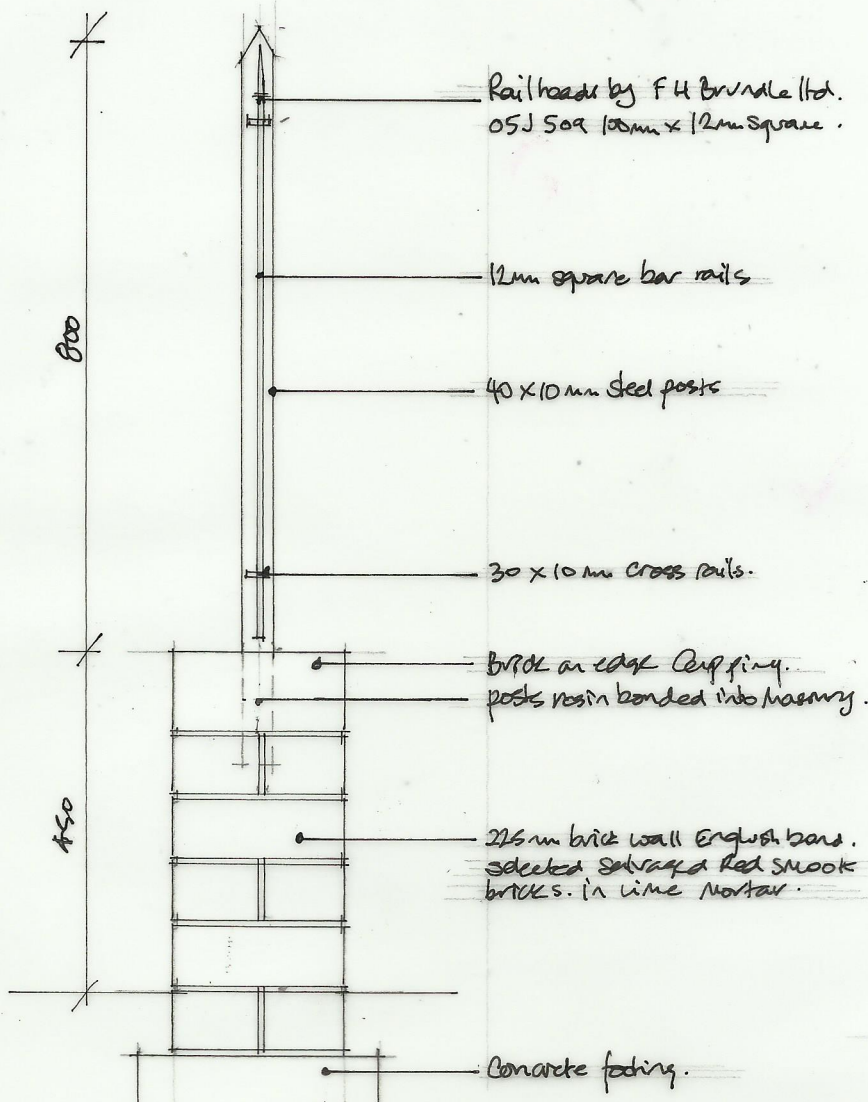 Railheads by F H Brundle ltd.
05J 509 100mm x 12mm square.
12mm square bar rails
800
40 x 10 mm steel posts
30 x 10 mm cross rails.
Brick on edge Capping.
posts resin bonded into Masonry.
450
225mm brick wall English bond.
selected salvaged Red
bricks. in lime Mortar.
Concrete footing.